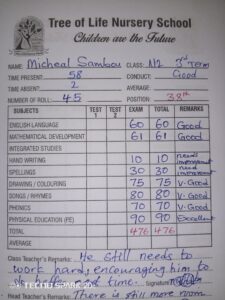 Tree of Life Nursery School
Children are the Future
NAME: Micheal Sambou CLASS: N2 3rd Term
TIME PRESENT: 58 CONDUCT: Good
TIME ABSENT: 2 AVERAGE:
NUMBER OF ROLL: 45 POSITION: 38th
SUBJECTS TEST 1 TEST 2 EXAM TOTAL REMARKS
ENGLISH LANGUAGE 60 60 Good
MATHEMATICAL DEVELOPMENT 61 61 Good
INTEGRATED STUDIES
HAND WRITING 10 10 need improvement
SPELLINGS 30 30 need improvement
DRAWING / COLOURING 75 75 V-Good
SONGS / RHYMES 80 80 V-Good
PHONICS 70 70 V-Good
PHYSICAL EDUCATION (PE) 90 90 Excellent
TOTAL 476 476
AVERAGE
Class Teacher's Remark: He still needs to
work hard, encouraging him to
time. Signature
Head Teacher's Remark: There is still more room
TECNO SPARK 20